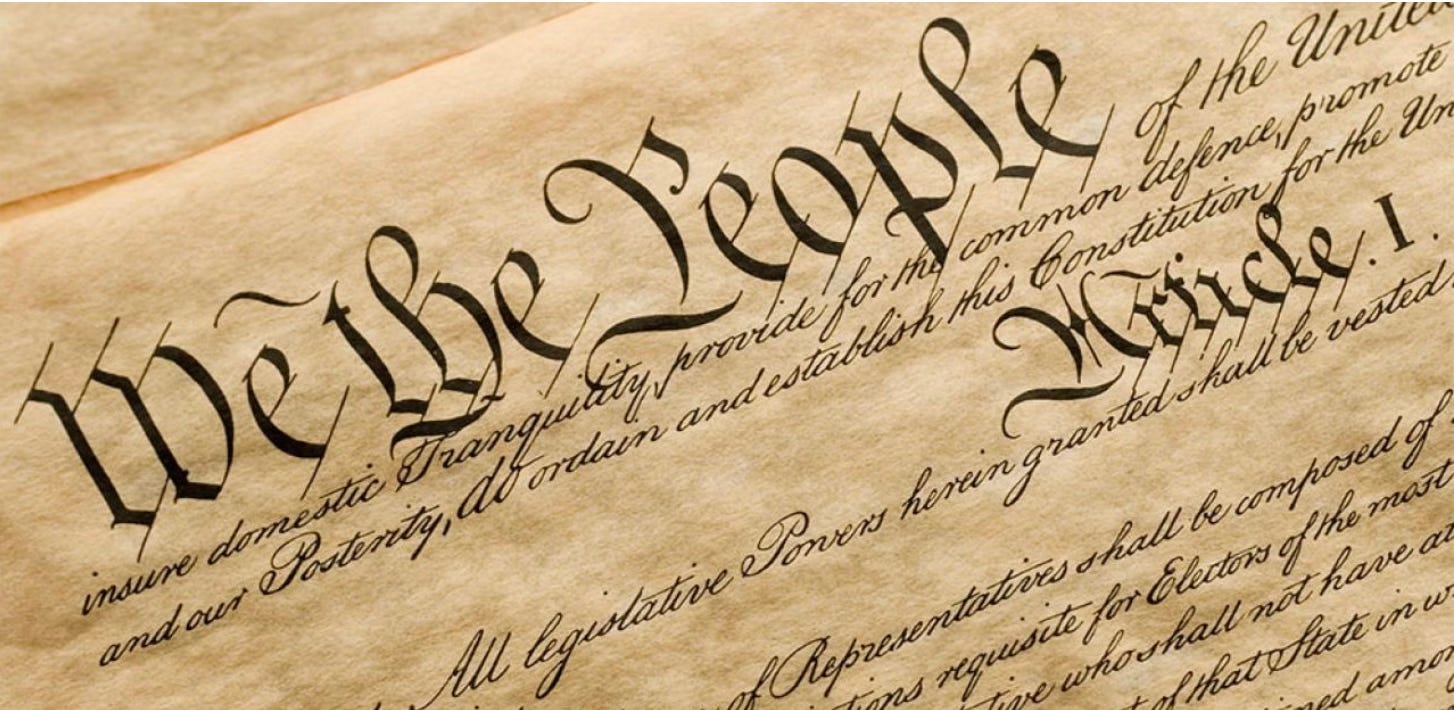 We the People of the United
insure domestic Tranquility, provide for the common defence, promote
and our Posterity, do ordain and establish this Constitution for the Un
Article. I.
All legislative Powers herein granted shall be vested
of Representatives shall be composed of
tions requisite for Electors of the most
tive who shall not have
t of that State in w
ned amon